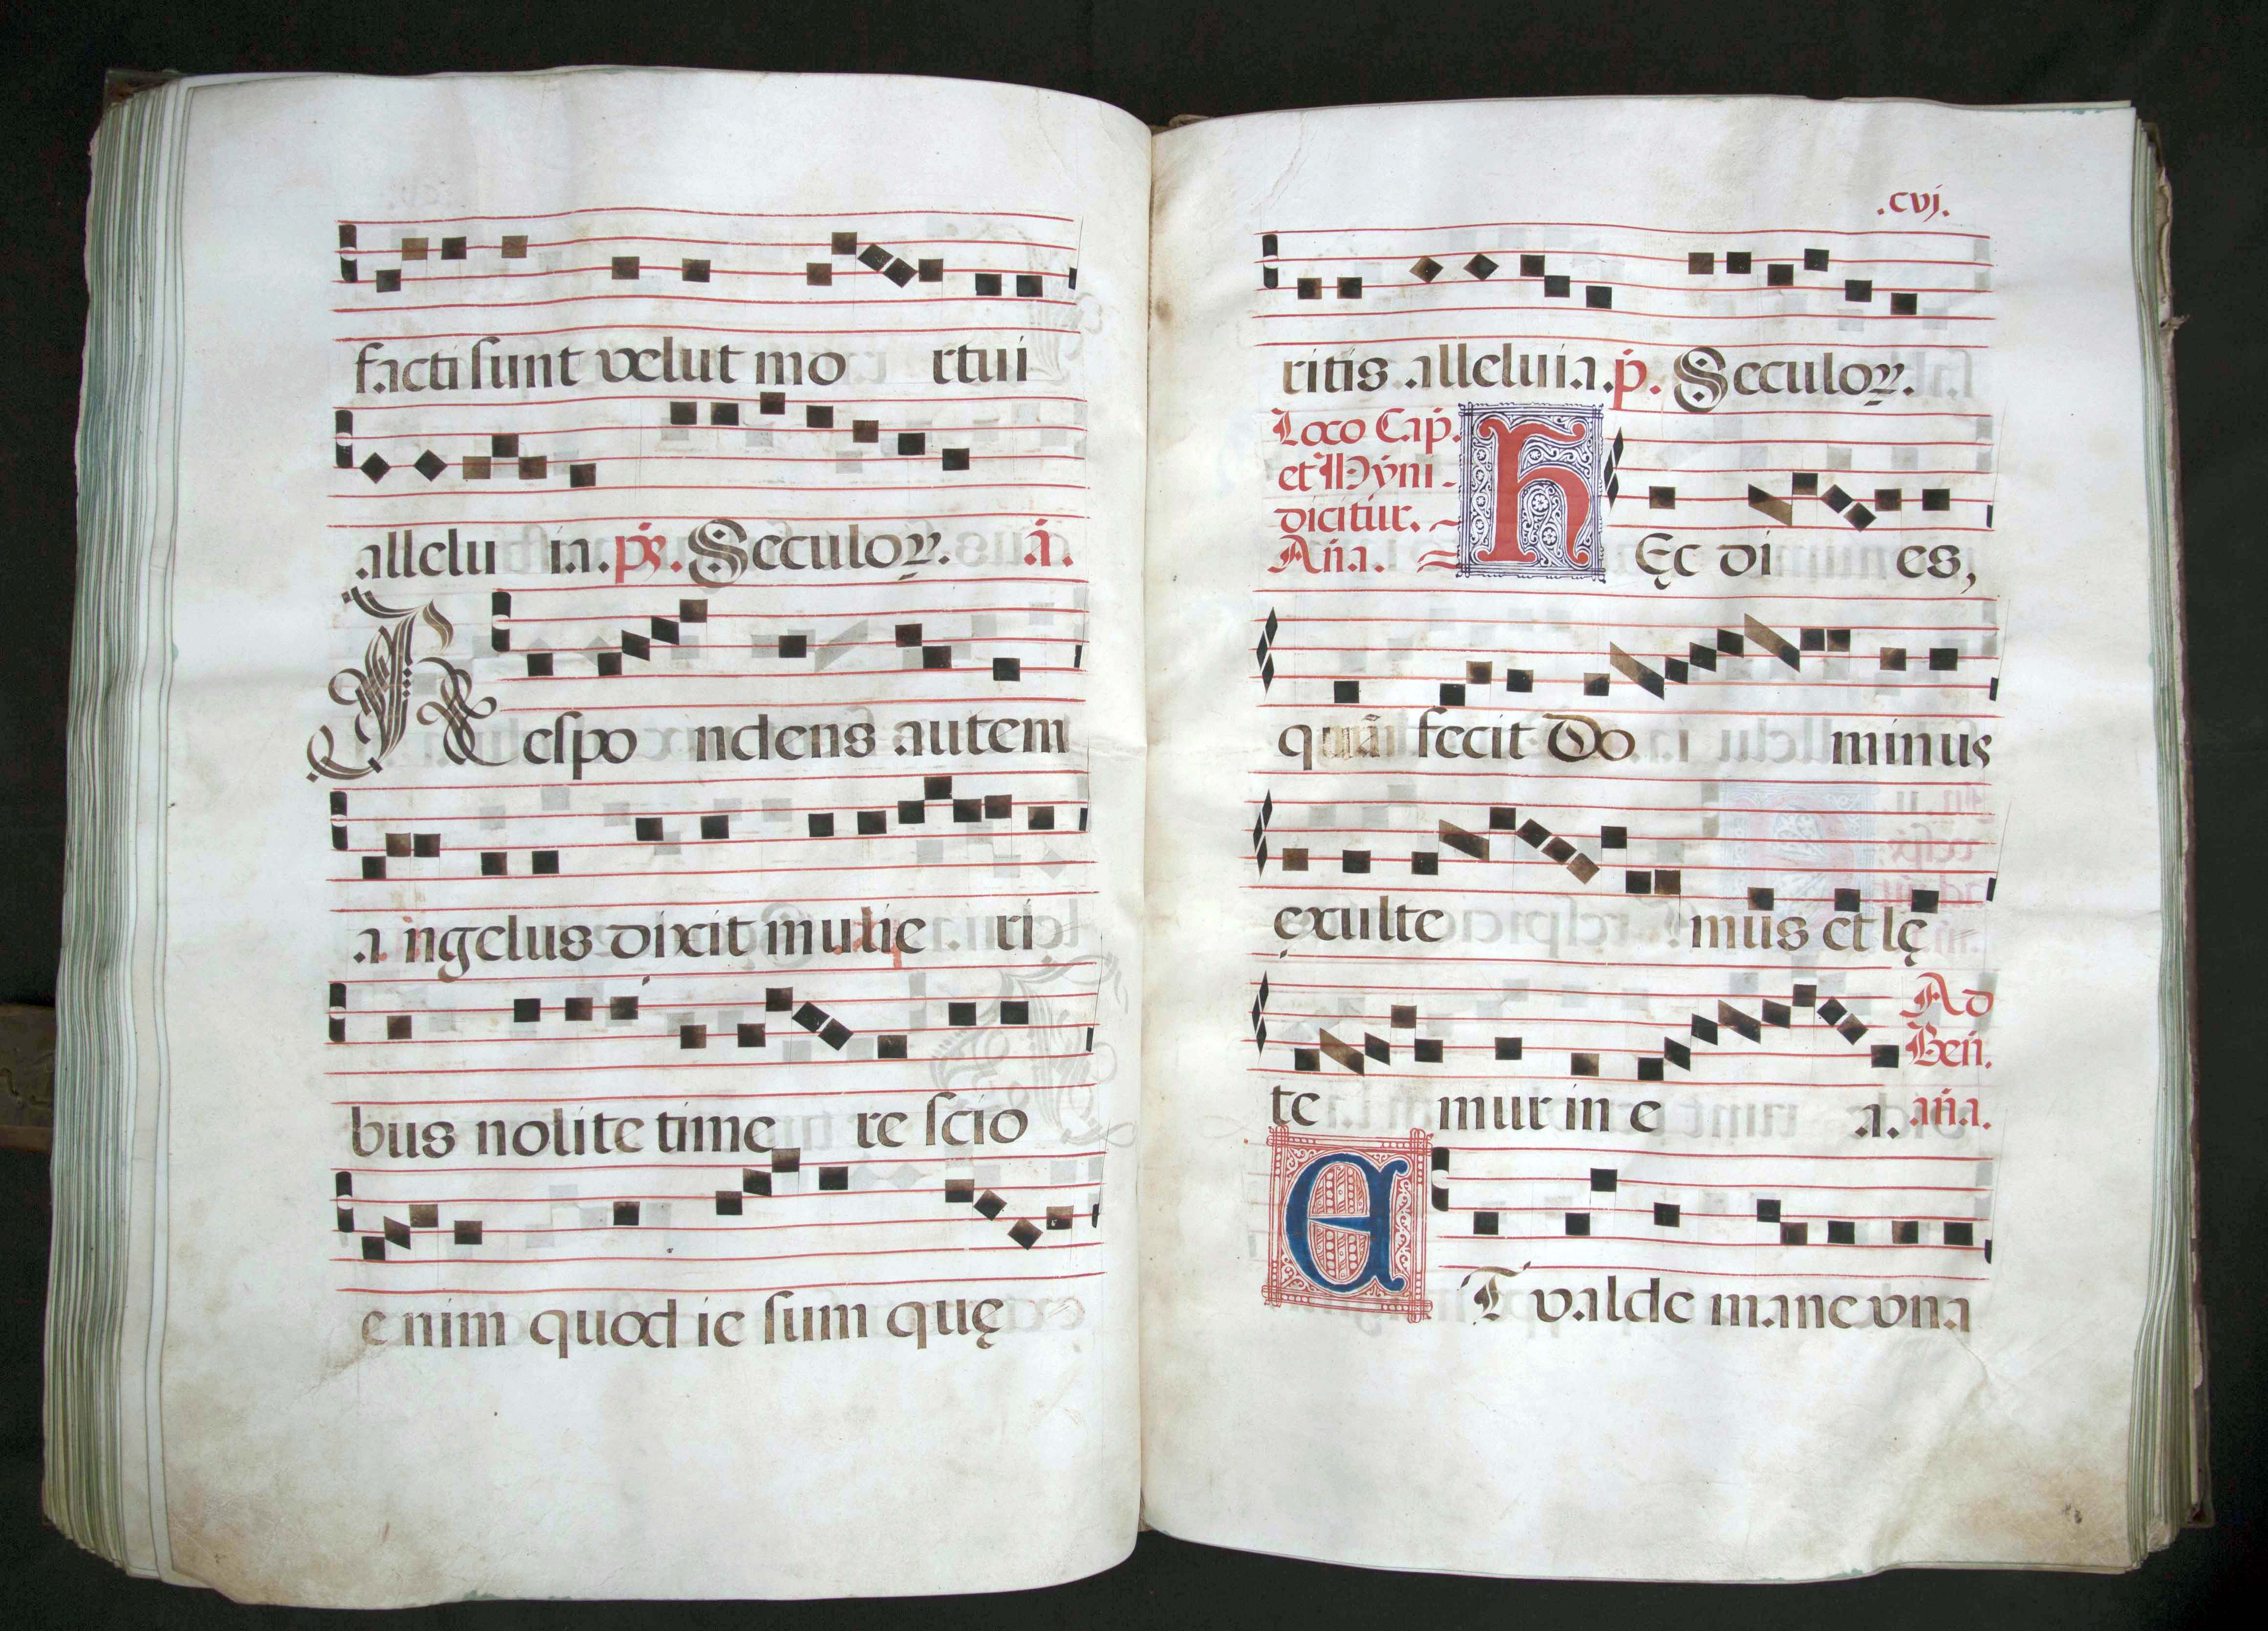 facti sunt velut mo rtui
allelu ia. ps. Seculoꝝ. a.
Respo ndens autem
a ngelus dixit mulie ri
bus nolite time re scio
enim quod ie sum quę
.cvj.
ritis alleluia. p. Seculoꝝ.
Loco Cap.
et Hỹni
dicitur.
Añа.
HEc di es,
quã fecit Do minus
exulte mus et lę
te mur in e a.
Ad
Beñ.
añа.
ET valde mane vna